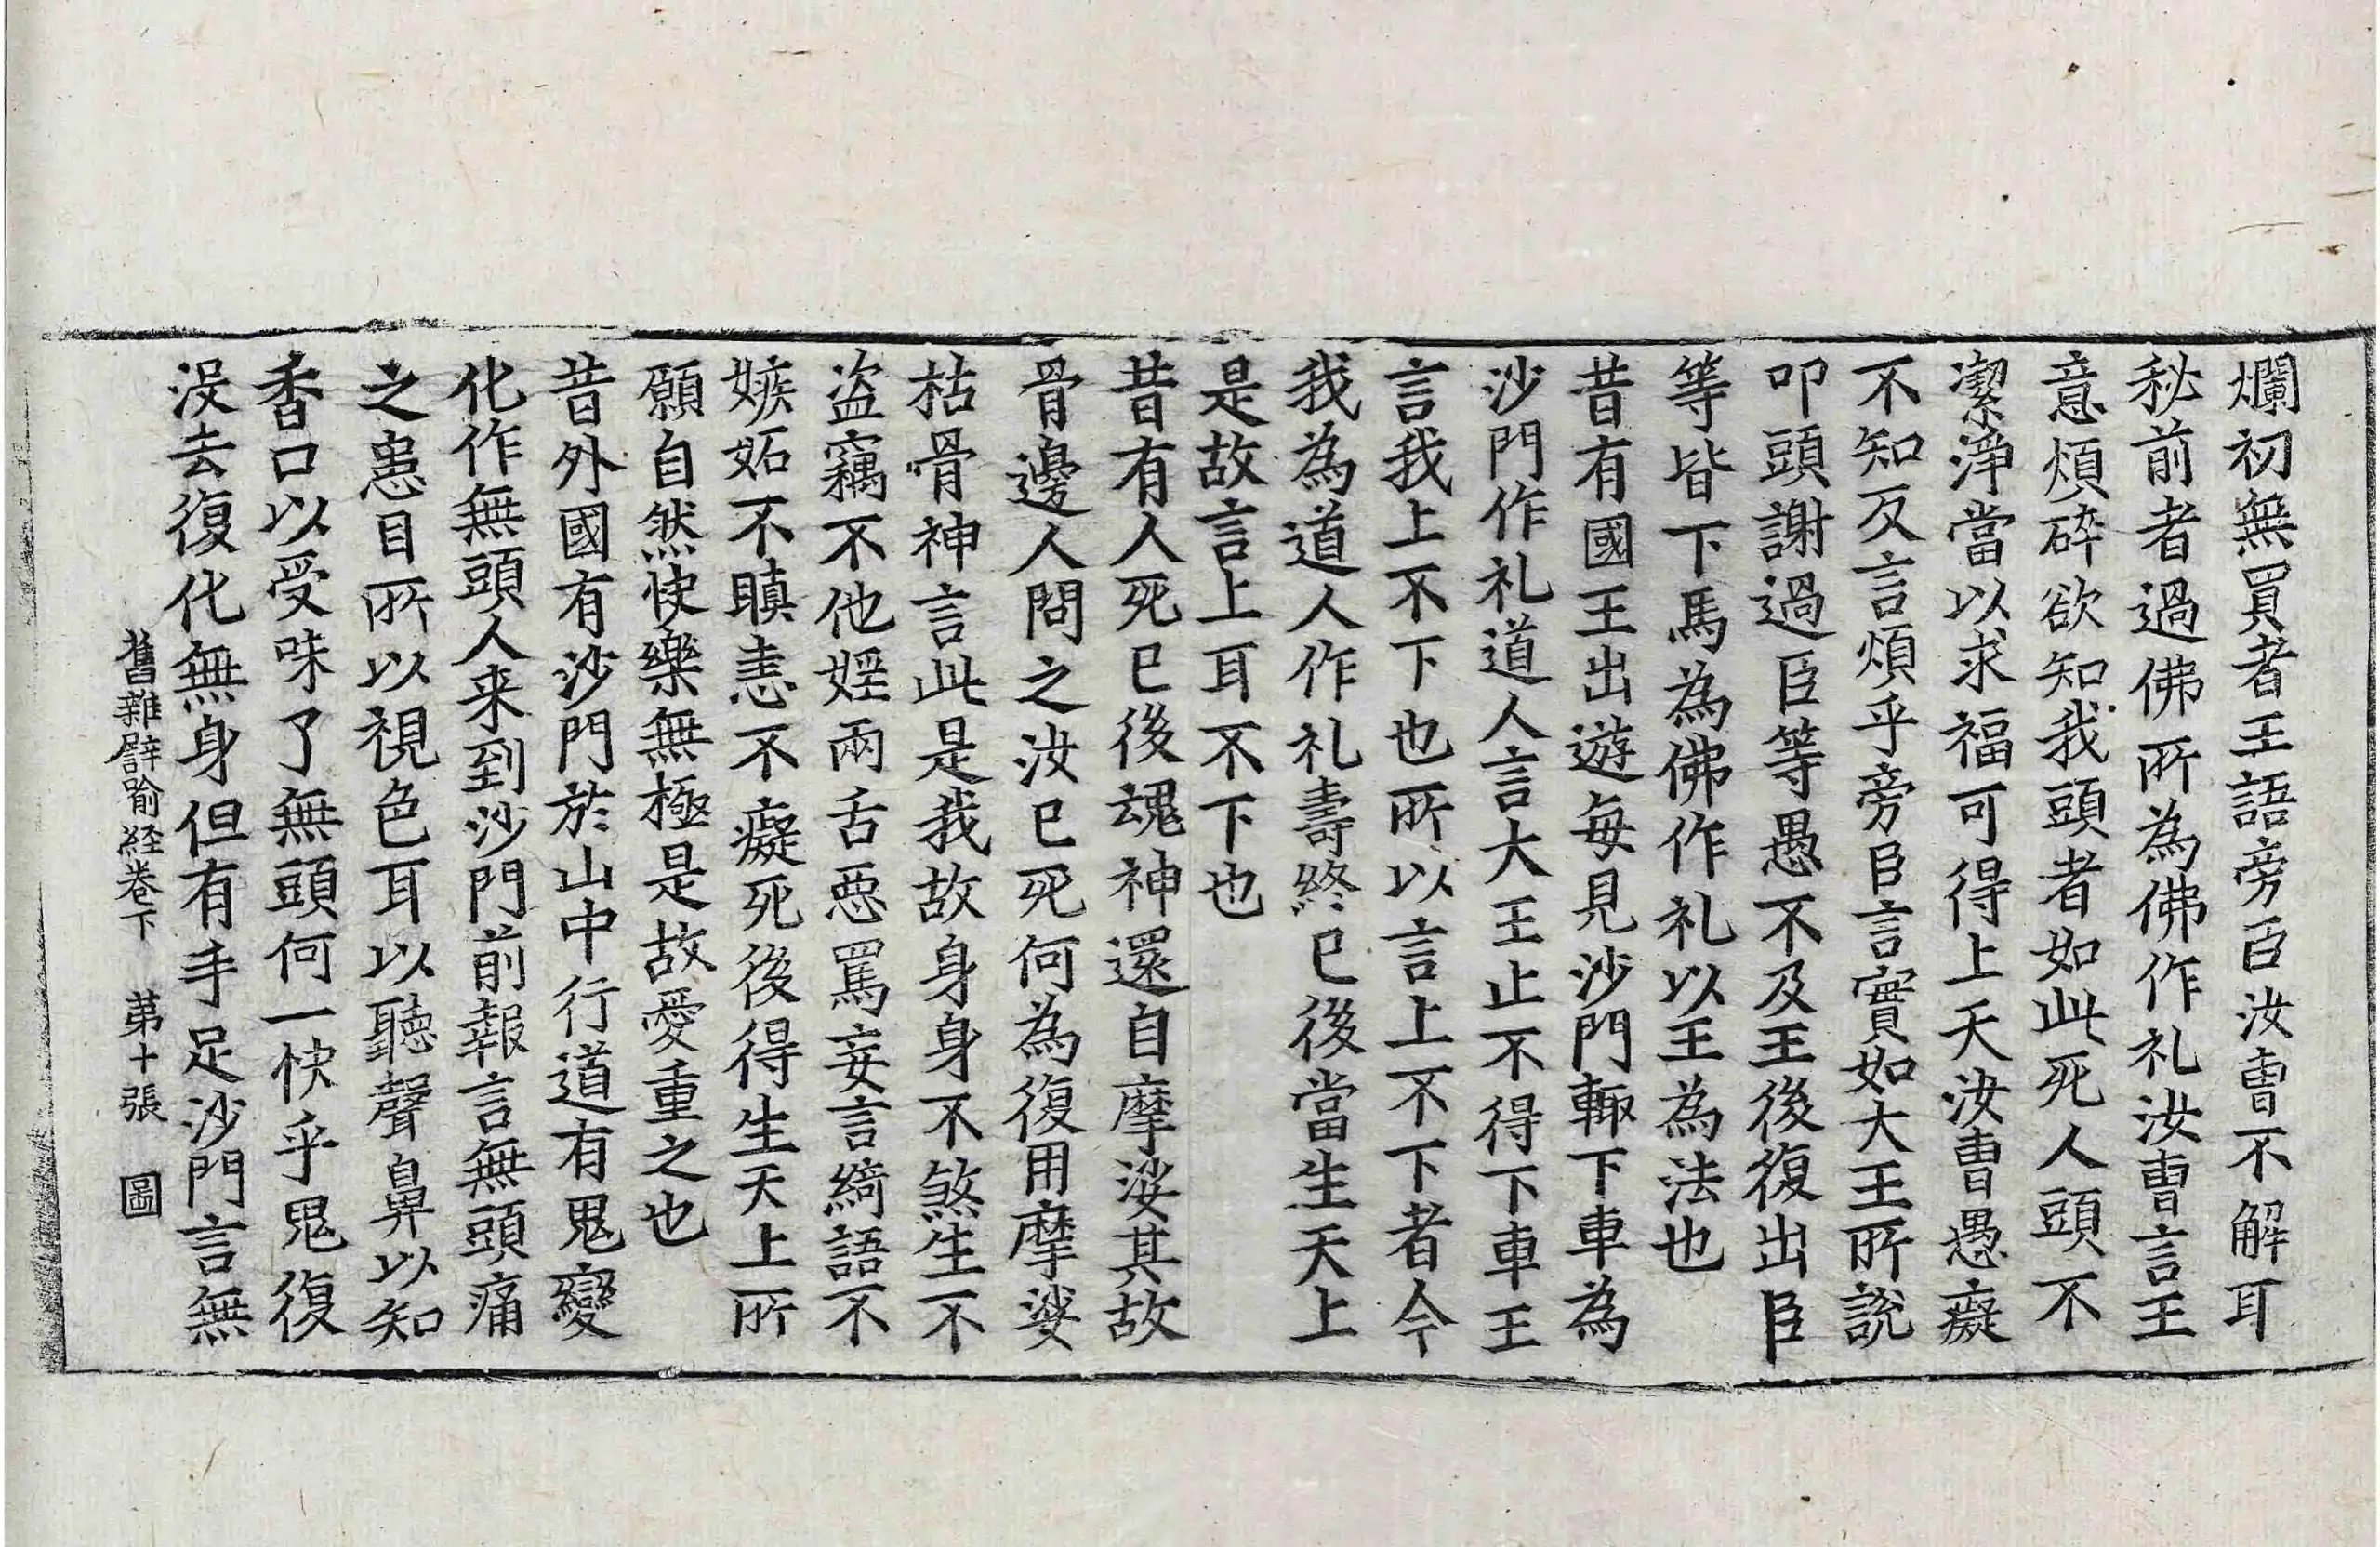 爛初無買者王語旁臣汝曹不解耳
秘前者過佛所為佛作礼汝曹言王
意煩碎欲知我頭者如此死人頭不
潔淨當以求福可得上天汝曹愚癡
不知反言煩乎旁臣言實如大王所説
叩頭謝過臣等愚不及王後復出臣
等皆下馬為佛作礼以王為法也
昔有國王出遊每見沙門輙下車為
沙門作礼道人言大王止不得下車王
言我上不下也所以言上不下者今
我為道人作礼壽終已後當生天上
是故言上耳不下也
昔有人死已後魂神還自摩娑其故
骨邊人問之汝已死何為復用摩娑
枯骨神言此是我故身身不煞生不
盗竊不他婬兩舌惡罵妄言綺語不
嫉妬不瞋恚不癡死後得生天上所
願自然快樂無極是故愛重之也
昔外國有沙門於山中行道有鬼變
化作無頭人来到沙門前報言無頭痛
之患目所以視色耳以聽聲鼻以知
香口以受味了無頭何一快乎鬼復
没去復化無身但有手足沙門言無
舊雜譬喻経卷下　苐十張　圖